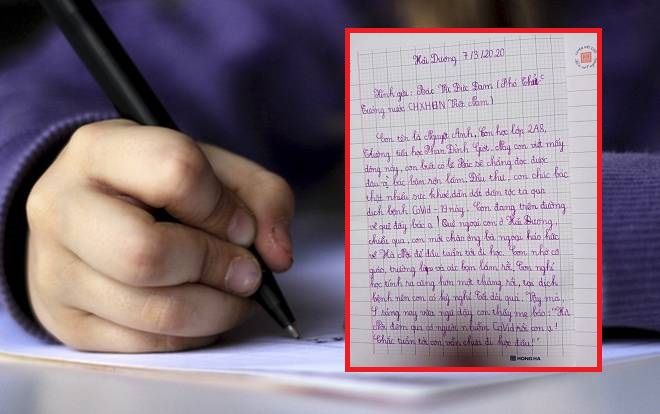 Hải Dương 7/3/2020
Kính gửi: Bác Vũ Đức Đam (Phó Thủ
Tướng nước CHXHCN Việt Nam)
Con tên là Nguyệt Anh, Con học lớp 2A8,
Trường tiểu học Phan Đình Giót. Nay con viết mấy
dòng này, con biết có lẽ Bác sẽ chẳng đọc được
đâu ạ, bác bận lắm. Đầu thư, con chúc bác
thật nhiều sức khoẻ, dẫn dắt đám tớ qua
dịch bệnh CoVid-19 này. Con đang trên đường
về quê đây bác ạ! Quê ngoại con ở Hải Dương,
chiều qua, con mới chào ông bà ngoại háo hức
về Hà Nội để đầu tuần tới đi học. Con nhớ cô
giáo, trường lớp và các bạn lắm rồi. Con nghỉ
học tính ra cũng hơn một tháng rồi, tại dịch
bệnh nên con có kỳ nghỉ Tết dài quá. Thế mà,
sáng nay vừa ngủ dậy con thấy mẹ bảo: "Hà
Nội đêm qua có người nhiễm CoVid rồi con ạ!
Chắc tuần tới con vẫn chưa đi học đâu!"
HONG HA